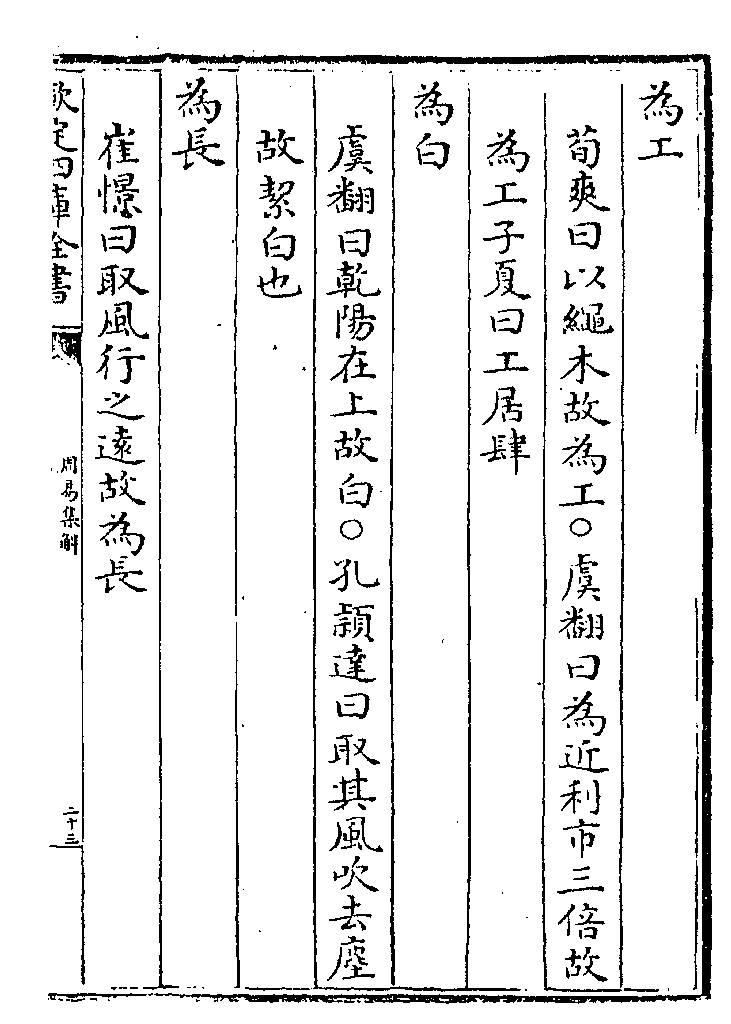 為工
荀爽曰以繩木故為工○虞翻曰為近利市三倍故
為工子夏曰工居肆
為白
虞翻曰乾陽在上故白○孔穎達曰取其風吹去塵
故絜白也
為長
崔憬曰取風行之遠故為長
欽定四庫全書
周易集解
二十三